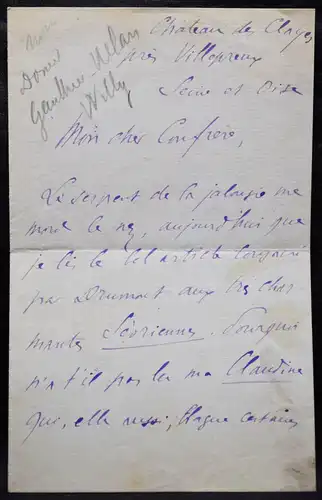 Château de Clayes
près Villepreux
Seine et Oise
Donné
Gauthier-Villars
Willy
Mon cher Confrère,
Le serpent de la jalousie me
mord le nez, aujourd'hui que
je lis le bel article consacré
par Drumont aux très char
mantes Sévriennes. Pourquoi
n'a t'il pas lu ma Claudine
qui, elle aussi, blague certaines